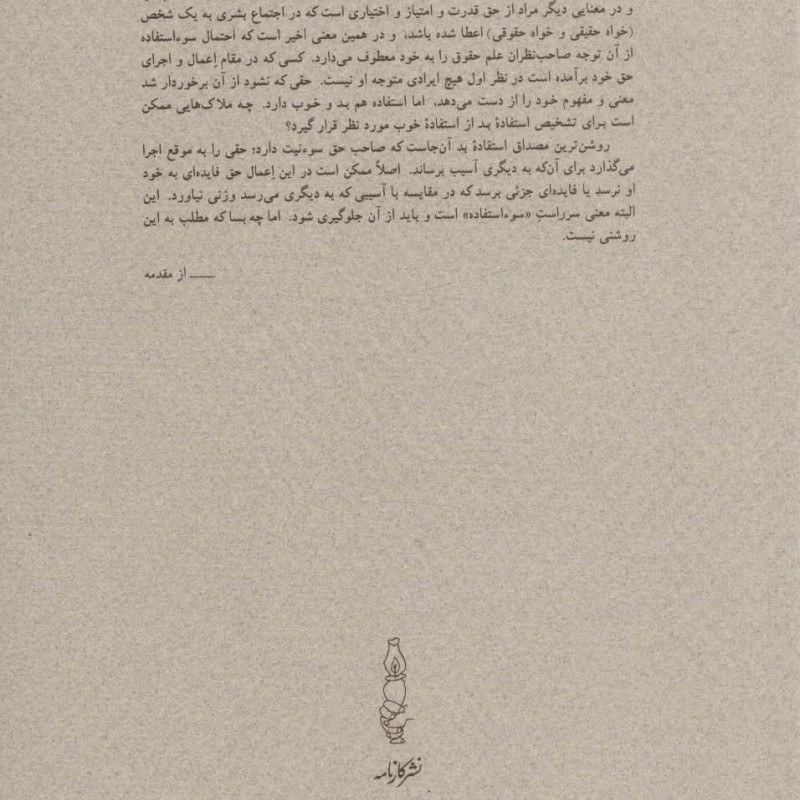 و در معنایی دیگر مراد از حق قدرت و امتیاز و اختیاری است که در اجتماع بشری به یک شخص
(خواه حقیقی و خواه حقوقی) اعطا شده باشد، و در همین معنی اخیر است که احتمال سوءاستفاده
از آن توجه صاحب‌نظران علم حقوق را به خود معطوف می‌دارد. کسی که در مقام اِعمال و اجرای
حق خود برآمده است در نظر اول هیچ ایرادی متوجه او نیست. حقی که نشود از آن برخوردار شد
معنی و مفهوم خود را از دست می‌دهد، اما استفاده هم بد و خوب دارد. چه ملاک‌هایی ممکن
است برای تشخیص استفادهٔ بد از استفادهٔ خوب مورد نظر قرار گیرد؟
روشن‌ترین مصداق استفادهٔ بد آن‌جاست که صاحب حق سوءنیت دارد؛ حقی را به موقع اجرا
می‌گذارد برای آن‌که به دیگری آسیب برساند. اصلاً ممکن است در این اِعمال حق فایده‌ای به خود
او نرسد یا فایده‌ای جزئی برسد که در مقایسه با آسیبی که به دیگری می‌رسد وزنی نیاورد. این
البته معنی سرراستِ «سوءاستفاده» است و باید از آن جلوگیری شود. اما چه بسا که مطلب به این
روشنی نیست.
—— از مقدمه
نشر کارنامه